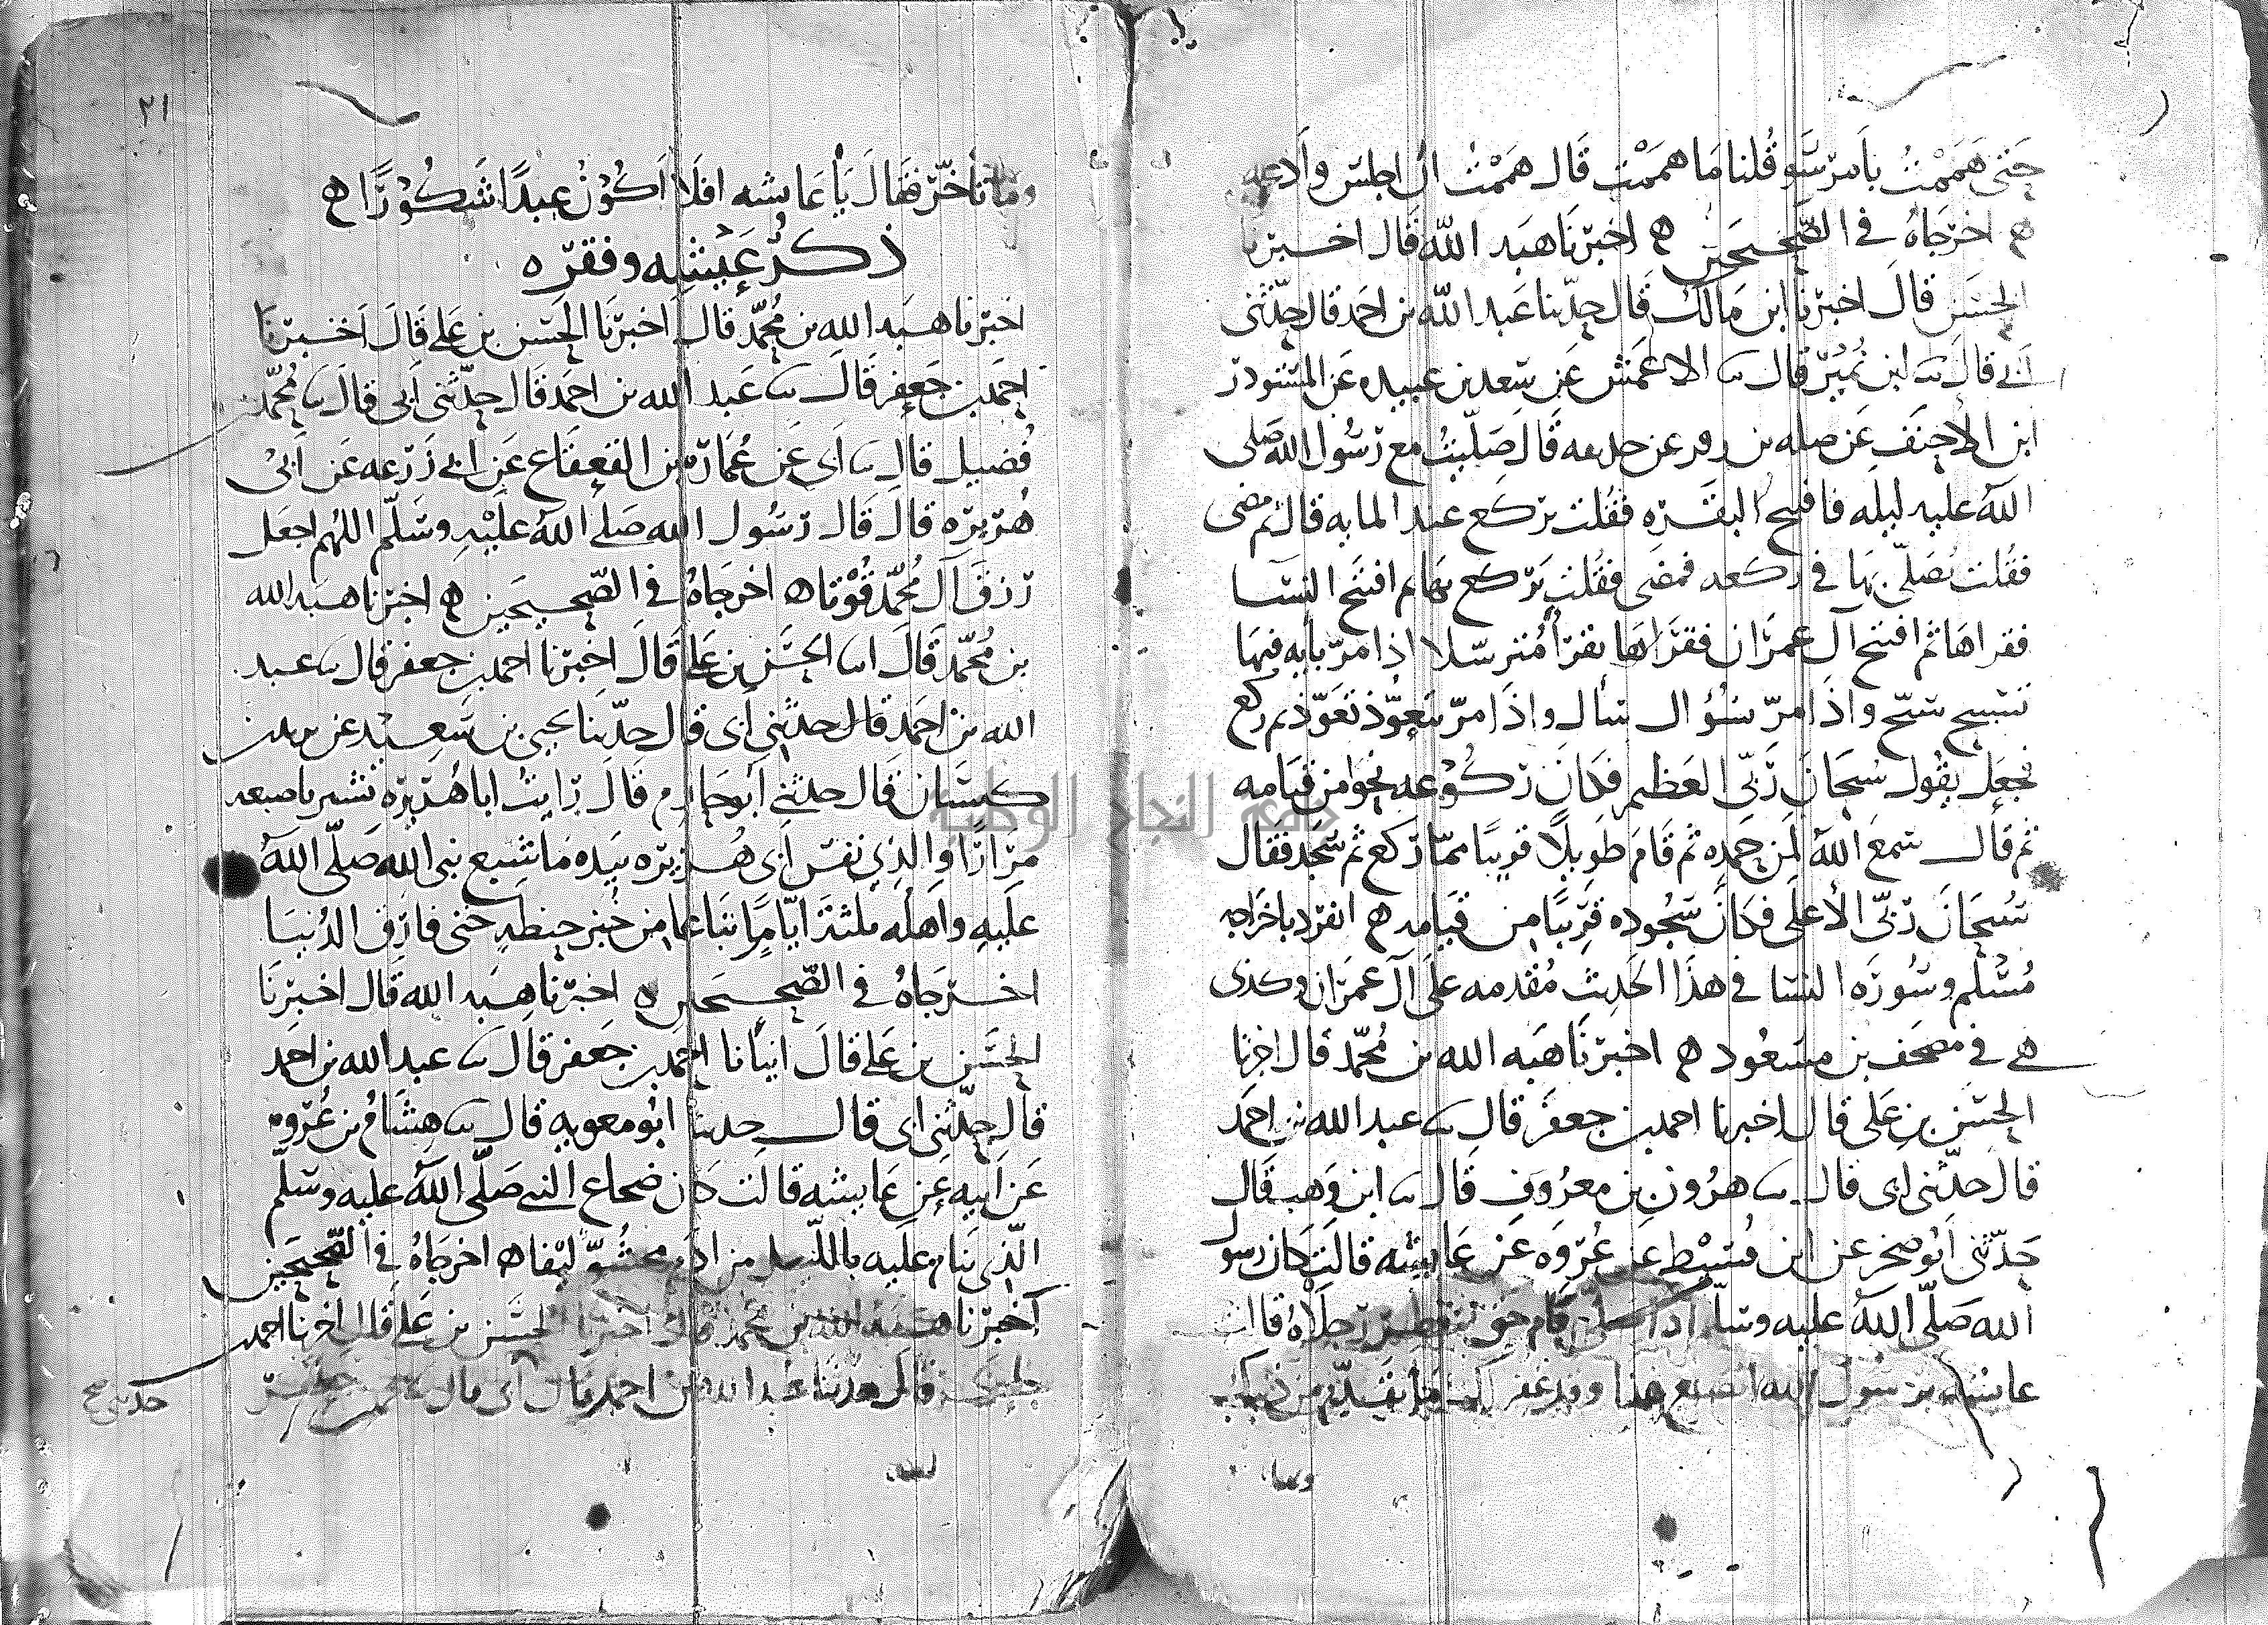 حتى هممت بأمر سو قلنا ما هممت قال هممت ان اجلس وأدعه
ه اخرجاه في الصحيحين ه اخبرنا هبه الله قال اخبرنا
الحسن قال اخبرنا ابن مالك قال حدثنا عبد الله بن احمد قال حدثني
أبي قال سا ابن نمير قال سا الاعمش عن سعد بن عبيده عن المستورد
ابن الأحنف عن صله بن زفر عن حذيفه قال صليت مع رسول الله صلى
الله عليه ليله فافتتح البقره فقلت يركع عند المايه قال ثم مضى
فقلت يصلي بها في ركعه فمضى فقلت يركع بها ثم افتتح النسا
فقراها ثم افتتح آل عمران فقراها يقرأ مترسلا اذا مر بآيه فيها
تسبيح سبح واذا مر بسؤال سأل واذا مر بتعوذ تعوذ ثم ركع
فجعل يقول سبحان ربي العظيم فكان ركوعه نحوا من قيامه
ثم قال سمع الله لمن حمده ثم قام طويلا قريبا مما ركع ثم سجد فقال
سبحان ربي الأعلى فكان سجوده قريبا من قيامه ه انفرد باخراجه
مسلم وسوره النسا في هذا الحديث مقدمه على آل عمران وكذى
هي في مصحف بن مسعود ه اخبرنا هبه الله بن محمد قال اخبرنا
الحسن بن علي قال اخبرنا احمد بن جعفر قال سا عبد الله بن احمد
قال حدثني ابي قال سا هرون بن معروف قال سا ابن وهب قال
حدثني أبو صخر عن ابن قسيط عن عروه عن عايشه قالت كان رسول
الله صلى الله عليه وسلم اذا صلى قام حتى تتفطر رجلاه قالت
عايشه يرسول الله اتصنع هذا وقد غفر لك ما تقدم من ذنبك
وما
٢١
وما تأخر فقال يا عايشه افلا اكون عبدا شكورا ه
ذكر عيشه وفقره
اخبرنا هبه الله بن محمد قال اخبرنا الحسن بن علي قال اخبرنا
احمد بن جعفر قال سا عبد الله بن احمد قال حدثني أبي قال سا محمد بن
فضيل قال سا أبي عن عماره بن القعقاع عن ابي زرعه عن أبي
هريره قال قال رسول الله صلى الله عليه وسلم اللهم اجعل
رزق آل محمد قوتا ه اخرجاه في الصحيحين ه اخبرنا هبه الله
بن محمد قال اسا الحسن بن علي قال اخبرنا احمد بن جعفر قال سا عبد
الله بن احمد قال حدثني أبي قال حدثنا يحيى بن سعيد عن يزيد بن
كيسان قال حدثني أبو حازم قال رايت ابا هريره يشير باصبعه
مرارا والذي نفس أبي هريره بيده ما شبع نبي الله صلى الله
عليه واهله ثلثة أياما تباعا من خبز حنطه حتى فارق الدنيا
اخرجاه في الصحيحين ه اخبرنا هبه الله قال اخبرنا
الحسن بن علي قال انبأنا احمد بن جعفر قال سا عبد الله بن احمد
قال حدثني ابي قال حدثنا ابو معويه قال سا هشام بن عروه
عن أبيه عن عايشه قالت كان ضجاع النبي صلى الله عليه وسلم
الذي ينام عليه بالليل من ادم محشو ليفا ه اخرجاه في الصحيحين
اخبرنا هبه الله بن محمد قال اخبرنا الحسن بن علي قال اخبرنا احمد
بن جعفر قال حدثنا عبد الله بن احمد قال أبي قال
حدثني صح
جامعة النجاح الوطنية